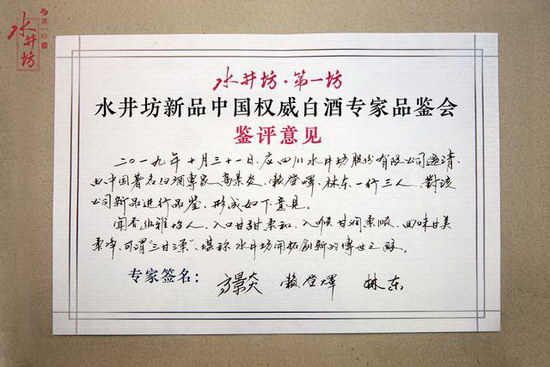 水井坊
第一坊
水井坊·第一坊
水井坊新品中国权威白酒专家品鉴会
鉴评意见
二〇一九年十月三十一日,应四川水井坊股份有限公司邀请,
由中国著名白酒专家高景炎、赖登燡、林东一行三人,对该
公司新品进行品鉴,形成如下意见。
闻香幽雅怡人,入口甘甜柔和,入喉甘润柔顺,回味甘美
净,可谓“三甘”,堪称水井坊开拓创新的传世之
专家签名: 高景炎 赖登燡 林东